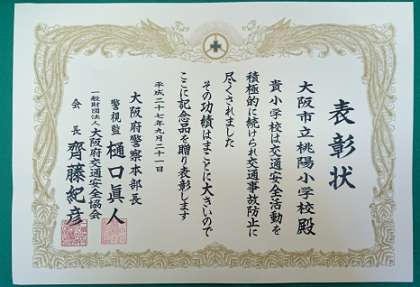 表彰状
大阪市立桃陽小学校殿
貴小学校は交通安全活動を
積極的に続けられ交通事故防止に
尽くされました
その功績はまことに大きいので
ここに記念品を贈り表彰します
平成二十七年九月二十一日
大阪府警察本部長
警視監 樋口眞人
一般財団法人 大阪府交通安全協会
会長 齊藤紀彦